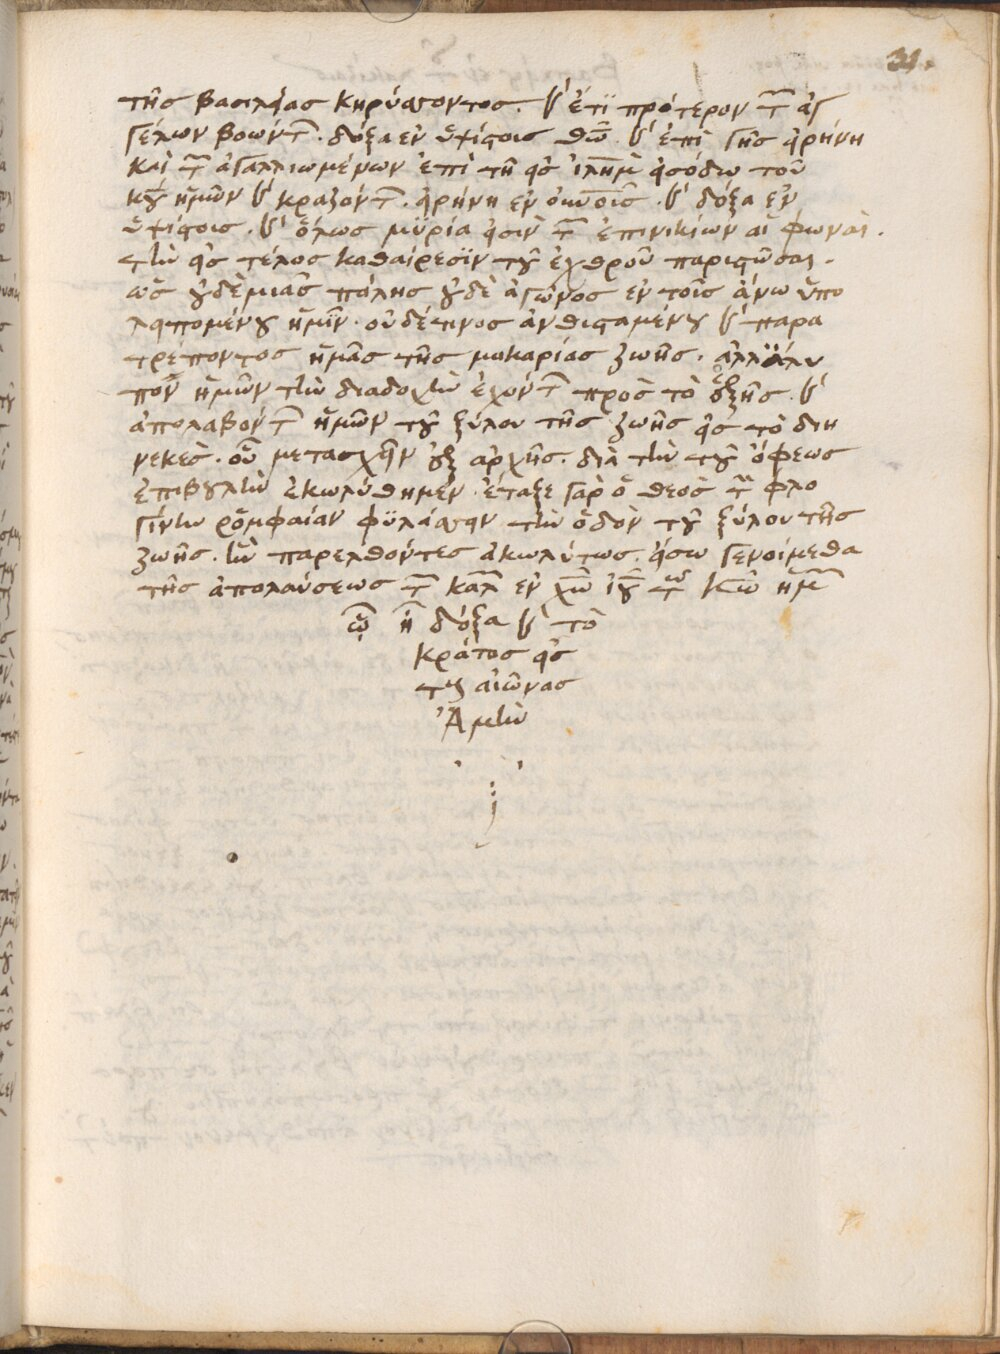 31.
τῆς βασιλείας κηρύσσοντος. καὶ ἔτϊ πρότερον τῶν ἀγ
γέλων βοώντων. δόξα ἐν ὑψίστοις θεῷ. καὶ ἐπὶ γῆς εἰρήνη
καὶ τῶν ἀγαλλιωμένων ἐπὶ τῇ εἰς ἱλῆμ εἰσόδω τοῦ
κυ ἡμῶν καὶ κραζόντων. εἰρήνη ἐν οὐνοῖς. καὶ δόξα ἐν
ὑψίστοις. καὶ ὅλως μϋρία εἰσὶν τῶν ἐπινικίων αἱ φωναὶ.
τὴν εἰς τέλος καθαίρεσϊν τοῦ ἐχθροῦ παριστῶσαι.
ὡς οὐδεμιᾶς πάλης οὐδὲ ἀγῶνος ἐν τοῖς ἄνω ὑπο
λειπομένου ἡμῖν. οὐδέ τινος ἀνθισταμένου καὶ παρα
τρέποντος ἡμᾶς τῆς μακαρίας ζωῆς. ἀλλ' ἄλυ
πον ἡμῶν τὴν διαδοχὴν ἐχόντων πρὸς τὸ ἑξῆς. καὶ
ἀπολαβόντων ἡμῶν τοῦ ξύλου τῆς ζωῆς εἰς τὸ διη
νεκὲς. οὗ μετασχεῖν ἐξ ἀρχῆς. διὰ τὴν τοῦ ὄφεως
ἐπιβουλὴν ἐκωλύθημεν. ἔταξε γὰρ ὁ θεὸς τὴν φλο
γίνην ῥομφαίαν φϋλάσσειν τὴν ὁδὸν τοῦ ξύλου τῆς
ζωῆς. ἣν παρελθόντες ἀκωλύτως. εἴσω γενοίμεθα
τῆς ἀπολαύσεως τῶν καλῶν ἐν χῶ ἰυ τῶ κω ἡμῶν
ᾧ ἡ δόξα καὶ τὸ
κράτος εἰς
τοὺς αἰῶνας
Ἀμὴν